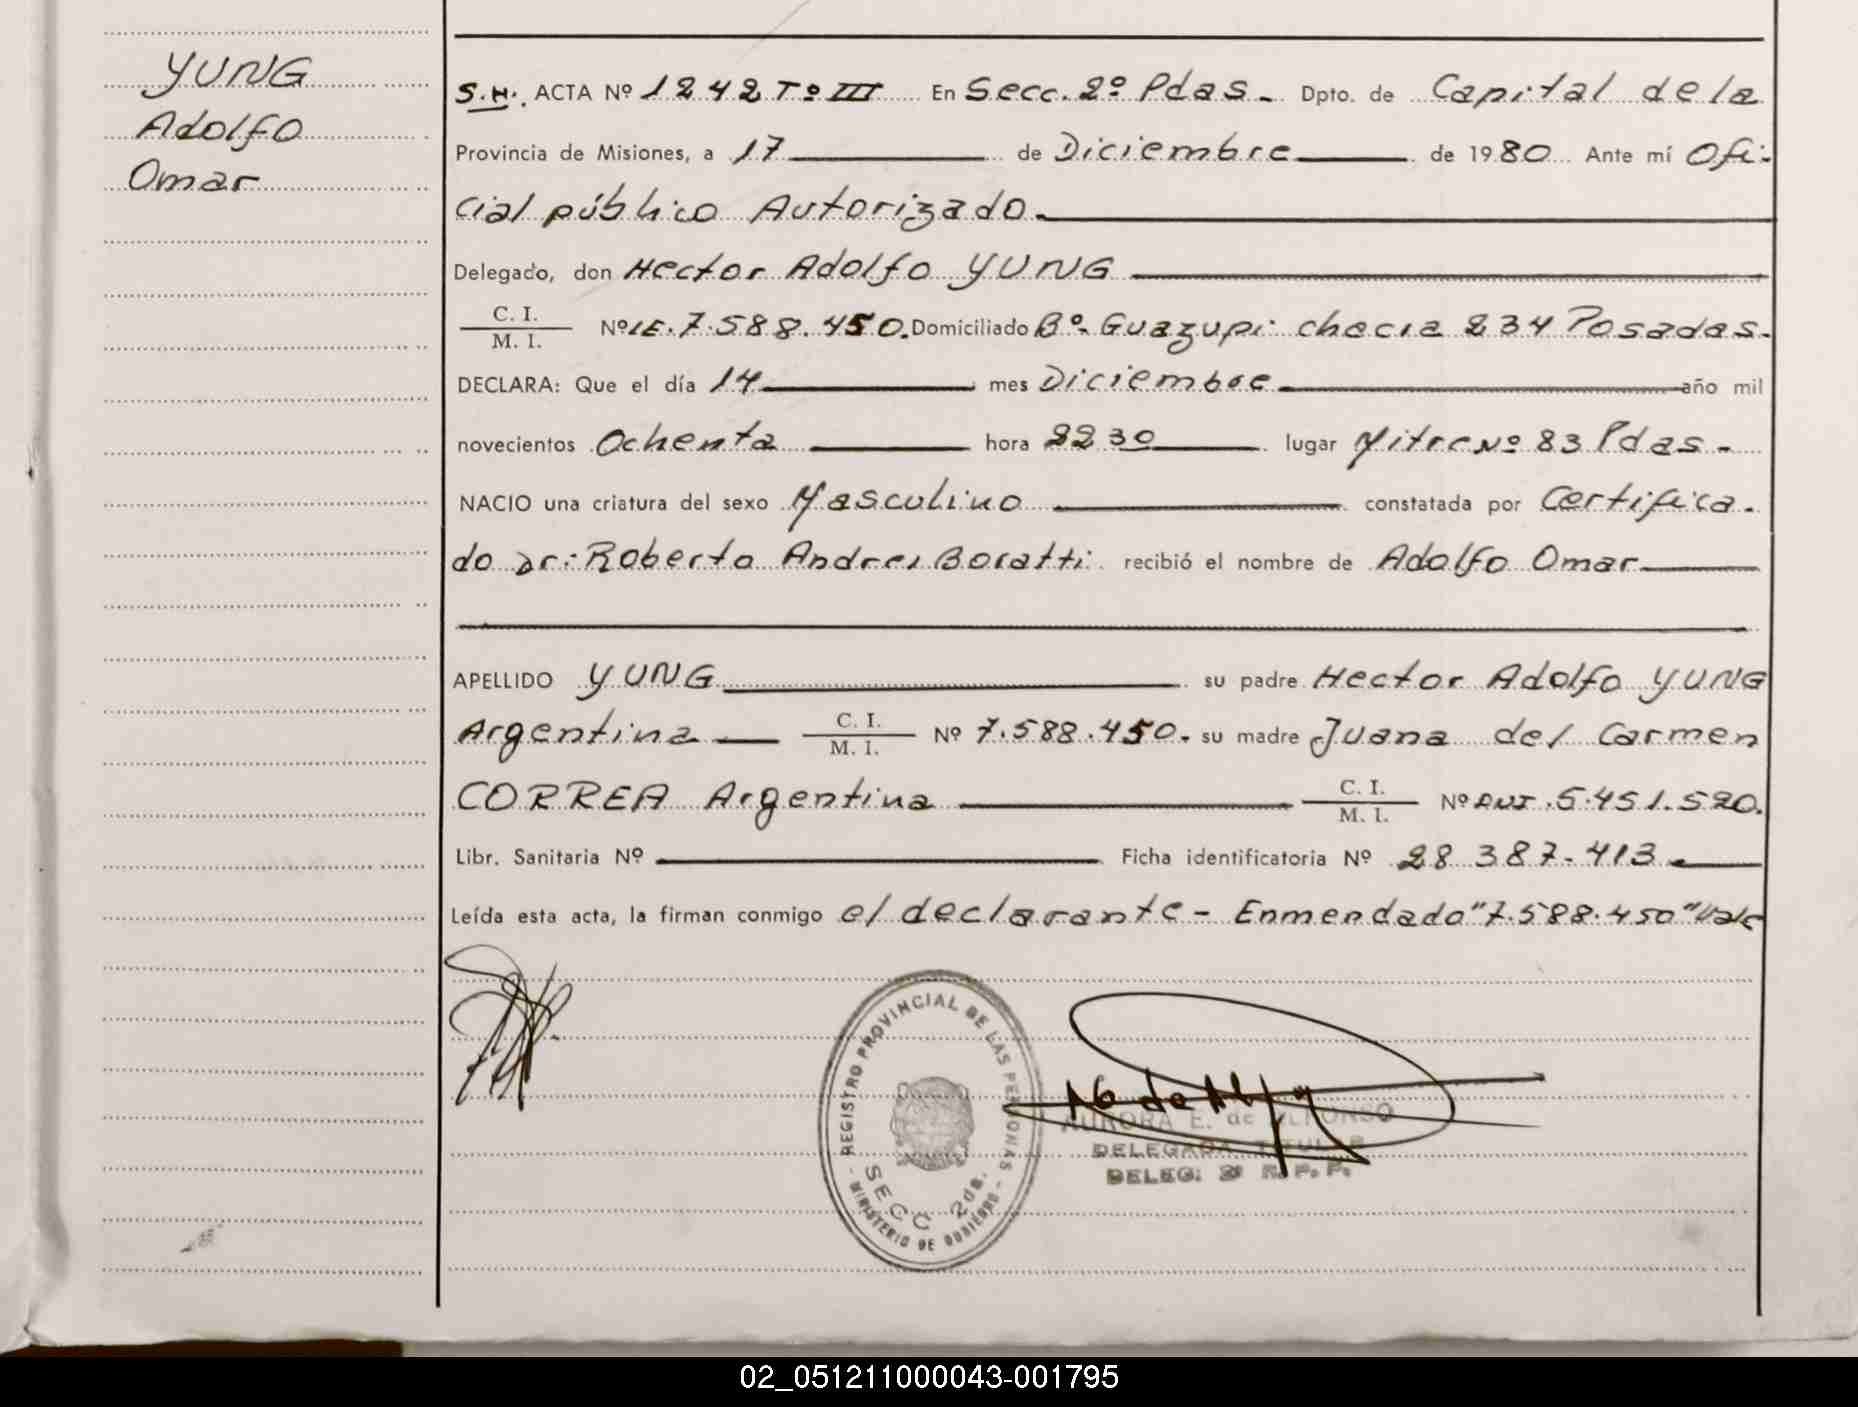 YUNG
Adolfo
Omar
S.H. ACTA Nº 1242 Tº III En Secc. 2º Pdas. Dpto. de Capital de la
Provincia de Misiones, a 17 de Diciembre de 1980 Ante mí Ofi-
cial público Autorizado.
Delegado, don Hector Adolfo YUNG
C. I.
M. I.
Nº LE. 7.588.450. Domiciliado Bº. Guazupi checia 234 Posadas.
DECLARA: Que el día 14 mes Diciembre año mil
novecientos Ochenta hora 22 30 lugar Mitre Nº 83 Pdas -
NACIO una criatura del sexo Masculino constatada por Certifica-
do Dr: Roberto Andres Boratti recibió el nombre de Adolfo Omar
APELLIDO YUNG su padre Hector Adolfo YUNG
Argentina C. I.
M. I.
Nº 7.588.450. su madre Juana del Carmen
CORREA Argentina C. I.
M. I.
Nº DNI. 5.451.520.
Libr. Sanitaria Nº Ficha identificatoria Nº 28 387.413
Leída esta acta, la firman conmigo el declarante - Enmendado "7.588.450" Vale
REGISTRO PROVINCIAL DE LAS PERSONAS
SECC 2da.
MINISTERIO DE GOBIERNO
AURORA E. de ALFONSO
DELEGADA TITULAR
DELEG. 2ª R. P. P.
02_051211000043-001795